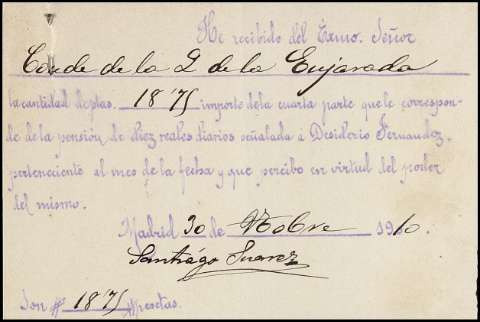 He recibido del Exmo. Señor
Conde de la Q de la Enjarada
la cantidad de ptas. 18'75 importe de la cuarta parte que le correspon-
de de la pensión de diez reales diarios señalada á Desiderio Fernandez,
perteneciente al mes de la fecha y que percibo en virtud del poder
del mismo.
Madrid 30 de Nobre 1910.
Santiágo Suarez
Son # 18'75 # pesetas.